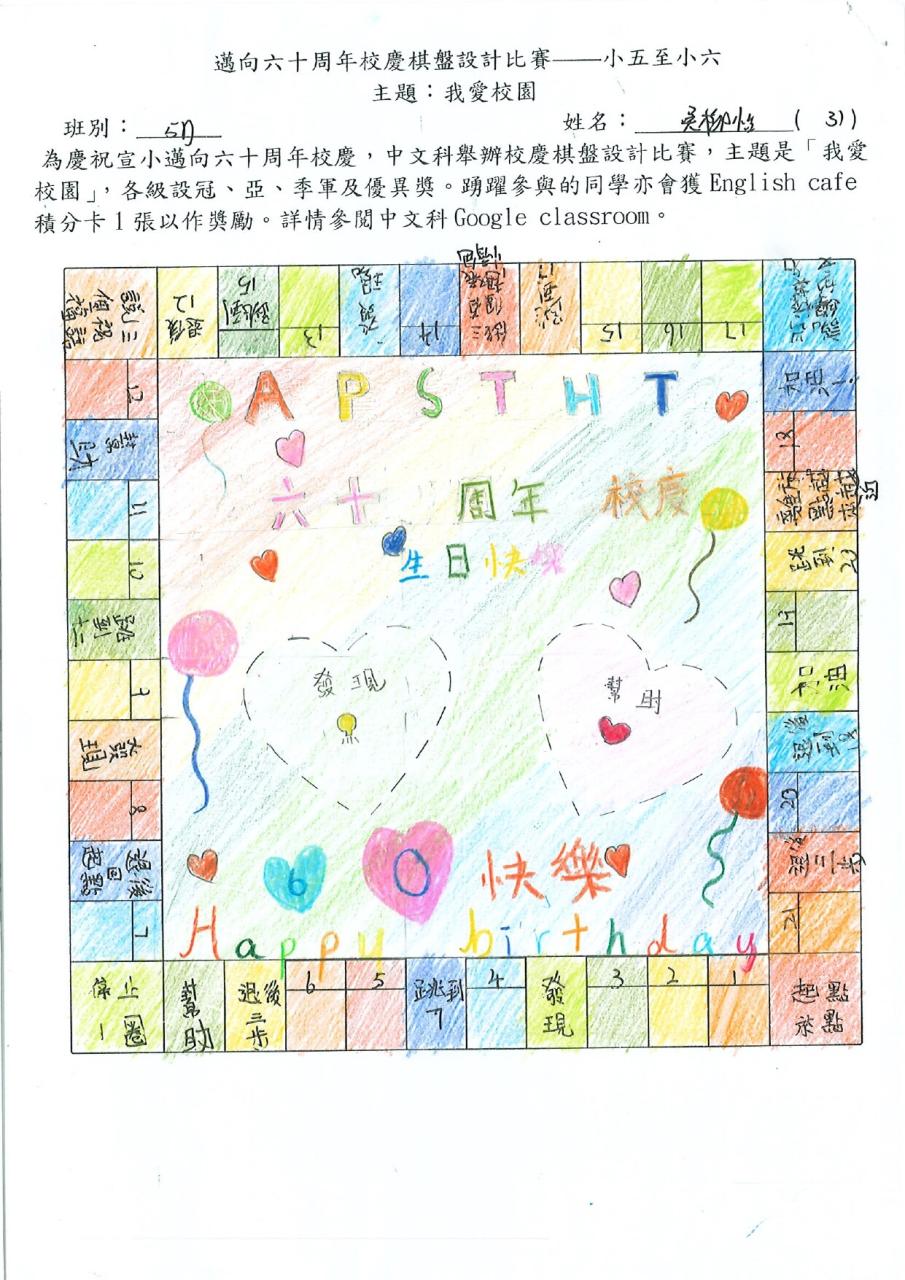 邁向六十周年校慶棋盤設計比賽——小五至小六
主題：我愛校園
班別： 姓名： ( 3 )
為慶祝宣小邁向六十周年校慶，中文科舉辦校慶棋盤設計比賽，主題是「我愛
校園」，各級設冠、亞、季軍及優異獎。踴躍參與的同學亦會獲 English cafe
積分卡 1 張以作獎勵。詳情參閱中文科 Google classroom。
說三個祝福語
退後12
跳到15
13
發現
14
15
16
17
A P S T H T
12
幫助
加油！
18
六十周年 校慶
11
生日快樂
10
跳到二十
跳到20
19
9
發現
幫助
加油
發現
8
20
退後三步
退後回起點
6 0 快樂
21
7
Happy birthday
停止一圈
幫助
退後三步
6
5
跳到7
4
發現
3
2
1
起點
終點